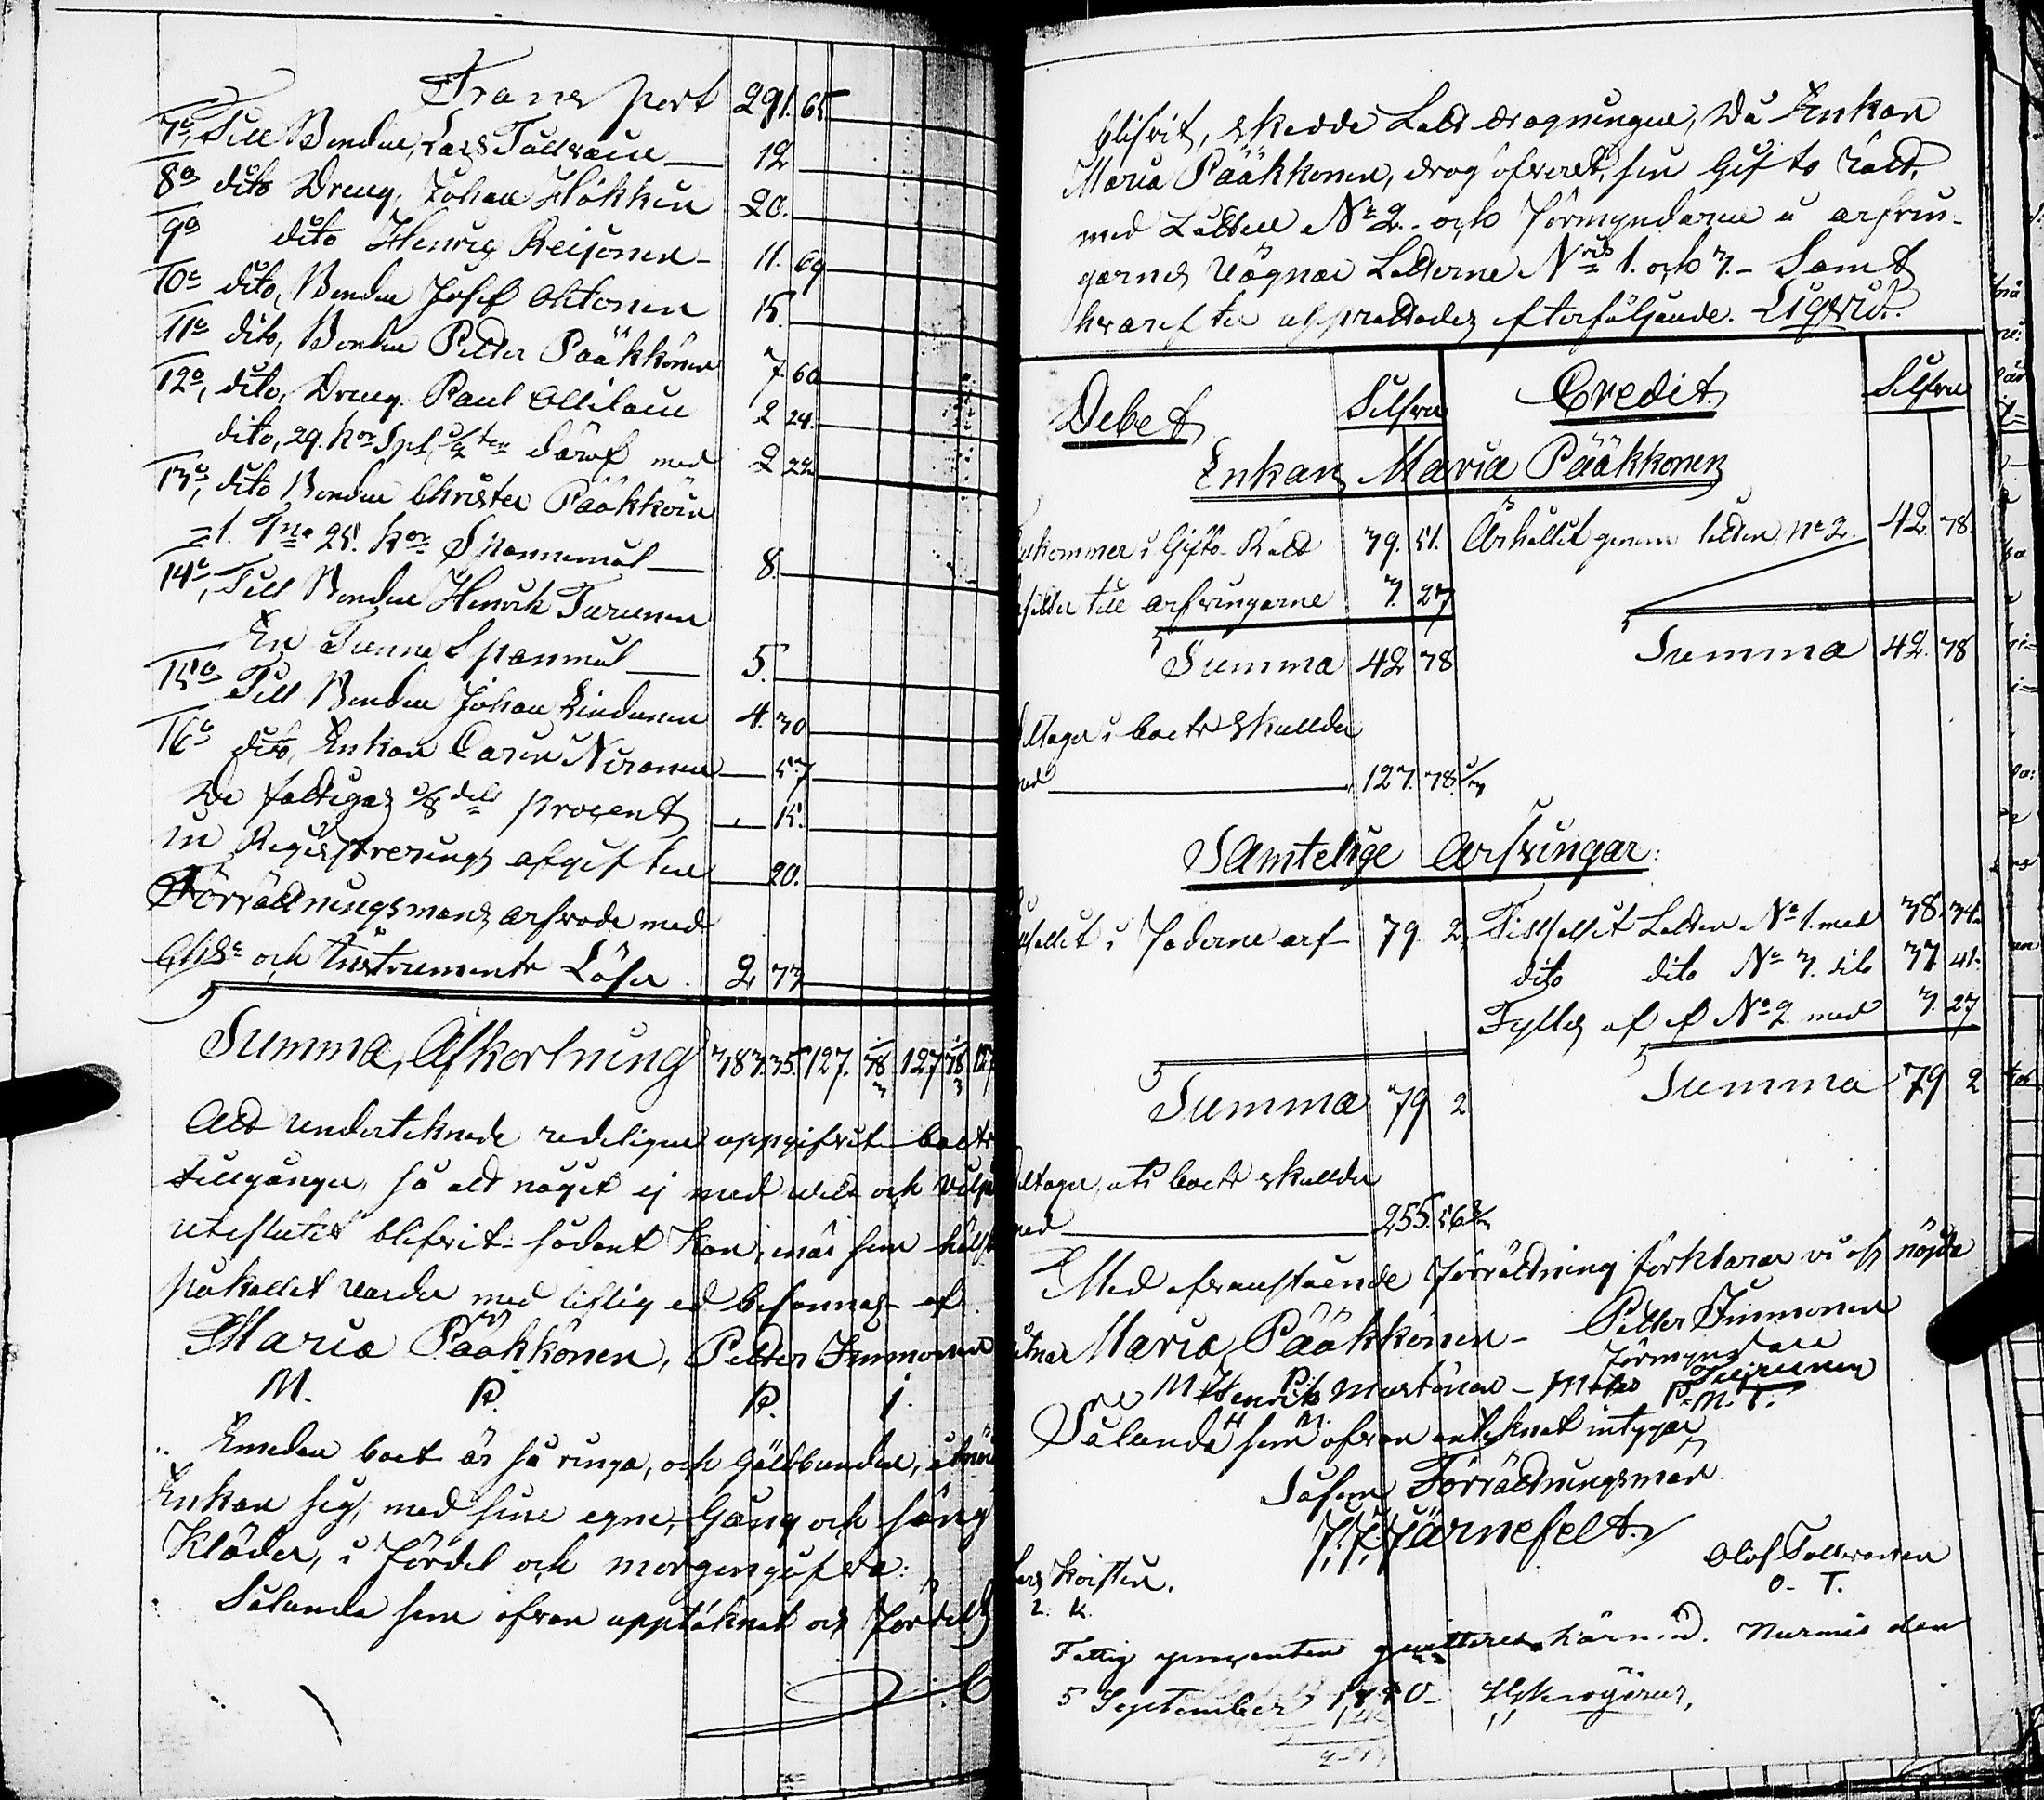 Transport 291. 65
7o, Till Bonden, Lars Tallvain 12
8o dito Dreng, Johan Hökkin 20.
9o dito Henric Reijonen 11. 69
10o dito, Bonden Josef Oktonen 15.
11o dito, Bonden Petter Pääkkönen 7. 60
12o, dito, Dreng Paul Ollilain 2 24.
dito, 29. kor Spl, 1/2 ten däraf med 2 22
13o, dito Bonden Christer Pääkköin
=1. Tna 25. kor Spannemål 8.
14o, Till Bonden Henrik Turunen
En Tunna Spanmål 5.
15o Till Bonden Johan Lindunen 4. 30
16o dito, Enkan Carin Niranen 57
De fattigas 1/8 dels procent 15.
in Registrerings afgiften 20.
Förrättningsmans arfvode med
Chse och Instruments Lösen. 2 73
Summa, Afkortning 383. 35. 127. 78 127 78 127
Att undertecknade redeligen uppgifvit boets
tillgångar, så att något ej med vett och vilja
uteslutit blifvit sådant kan, när som hälst
påkallat varder med liflig ed besannas af
Maria Pääkkönen, Petter Immonen
M. P. P. I.
Emedan boet är så ringa, och gäldbunden,
Enkan sig, med sine egne, Gång och säng
Kläder, i Fördel och morgongåfva.
Sålunda som ofvan upptäknat och fördelt
blifvit, skedde Lott dragningen, Då Enkan
Maria Pääkkonen, drog öfverst, sin Gifto rätt,
med Lotten No 2. och Förmyndaren å arfvin-
garnes vägnar Lotterne Nris 1. och 3. Samt
hvarefter upprättades efterföljande. Liqvid.
Debet Silfver Credit Silfver
Enkan Maria Pääkkonen
kommer i Gifto Rätt 39. 51. Erhållit genom lotten No 2. 42 78.
till arfvingarne 3. 27
Summa 42 78 Summa 42. 78
ltager i boets skulder
med 127. 78. 1/3
Samtelige Arfvingar:
fallit i Faderne arf 79 2, Tillfallit Lotten No 1. med 38. 34.
dito dito No 3. dito 37 41.
Fylles af No 2. med 3. 27
Summa 79 2 Summa 79 2
ltager uti boets skulder
med 255. 56 2/3
Med ofvanstående förrättning förklarar vi oss nöjda
Maria Pääkkönen Petter Immonen
M P. Förmyndare
Henrik Mustonen Mats Turunen
H M. P. M. T.
Sålunda som ofvan antecknat intygar
Såsom Förrättningsman
J. F. Järnefelt
Lars Koistin. Olof Tallvainen
L. K. O. T.
Fattig procenten qvitteras härmed. Nurmis den
5 September 1840